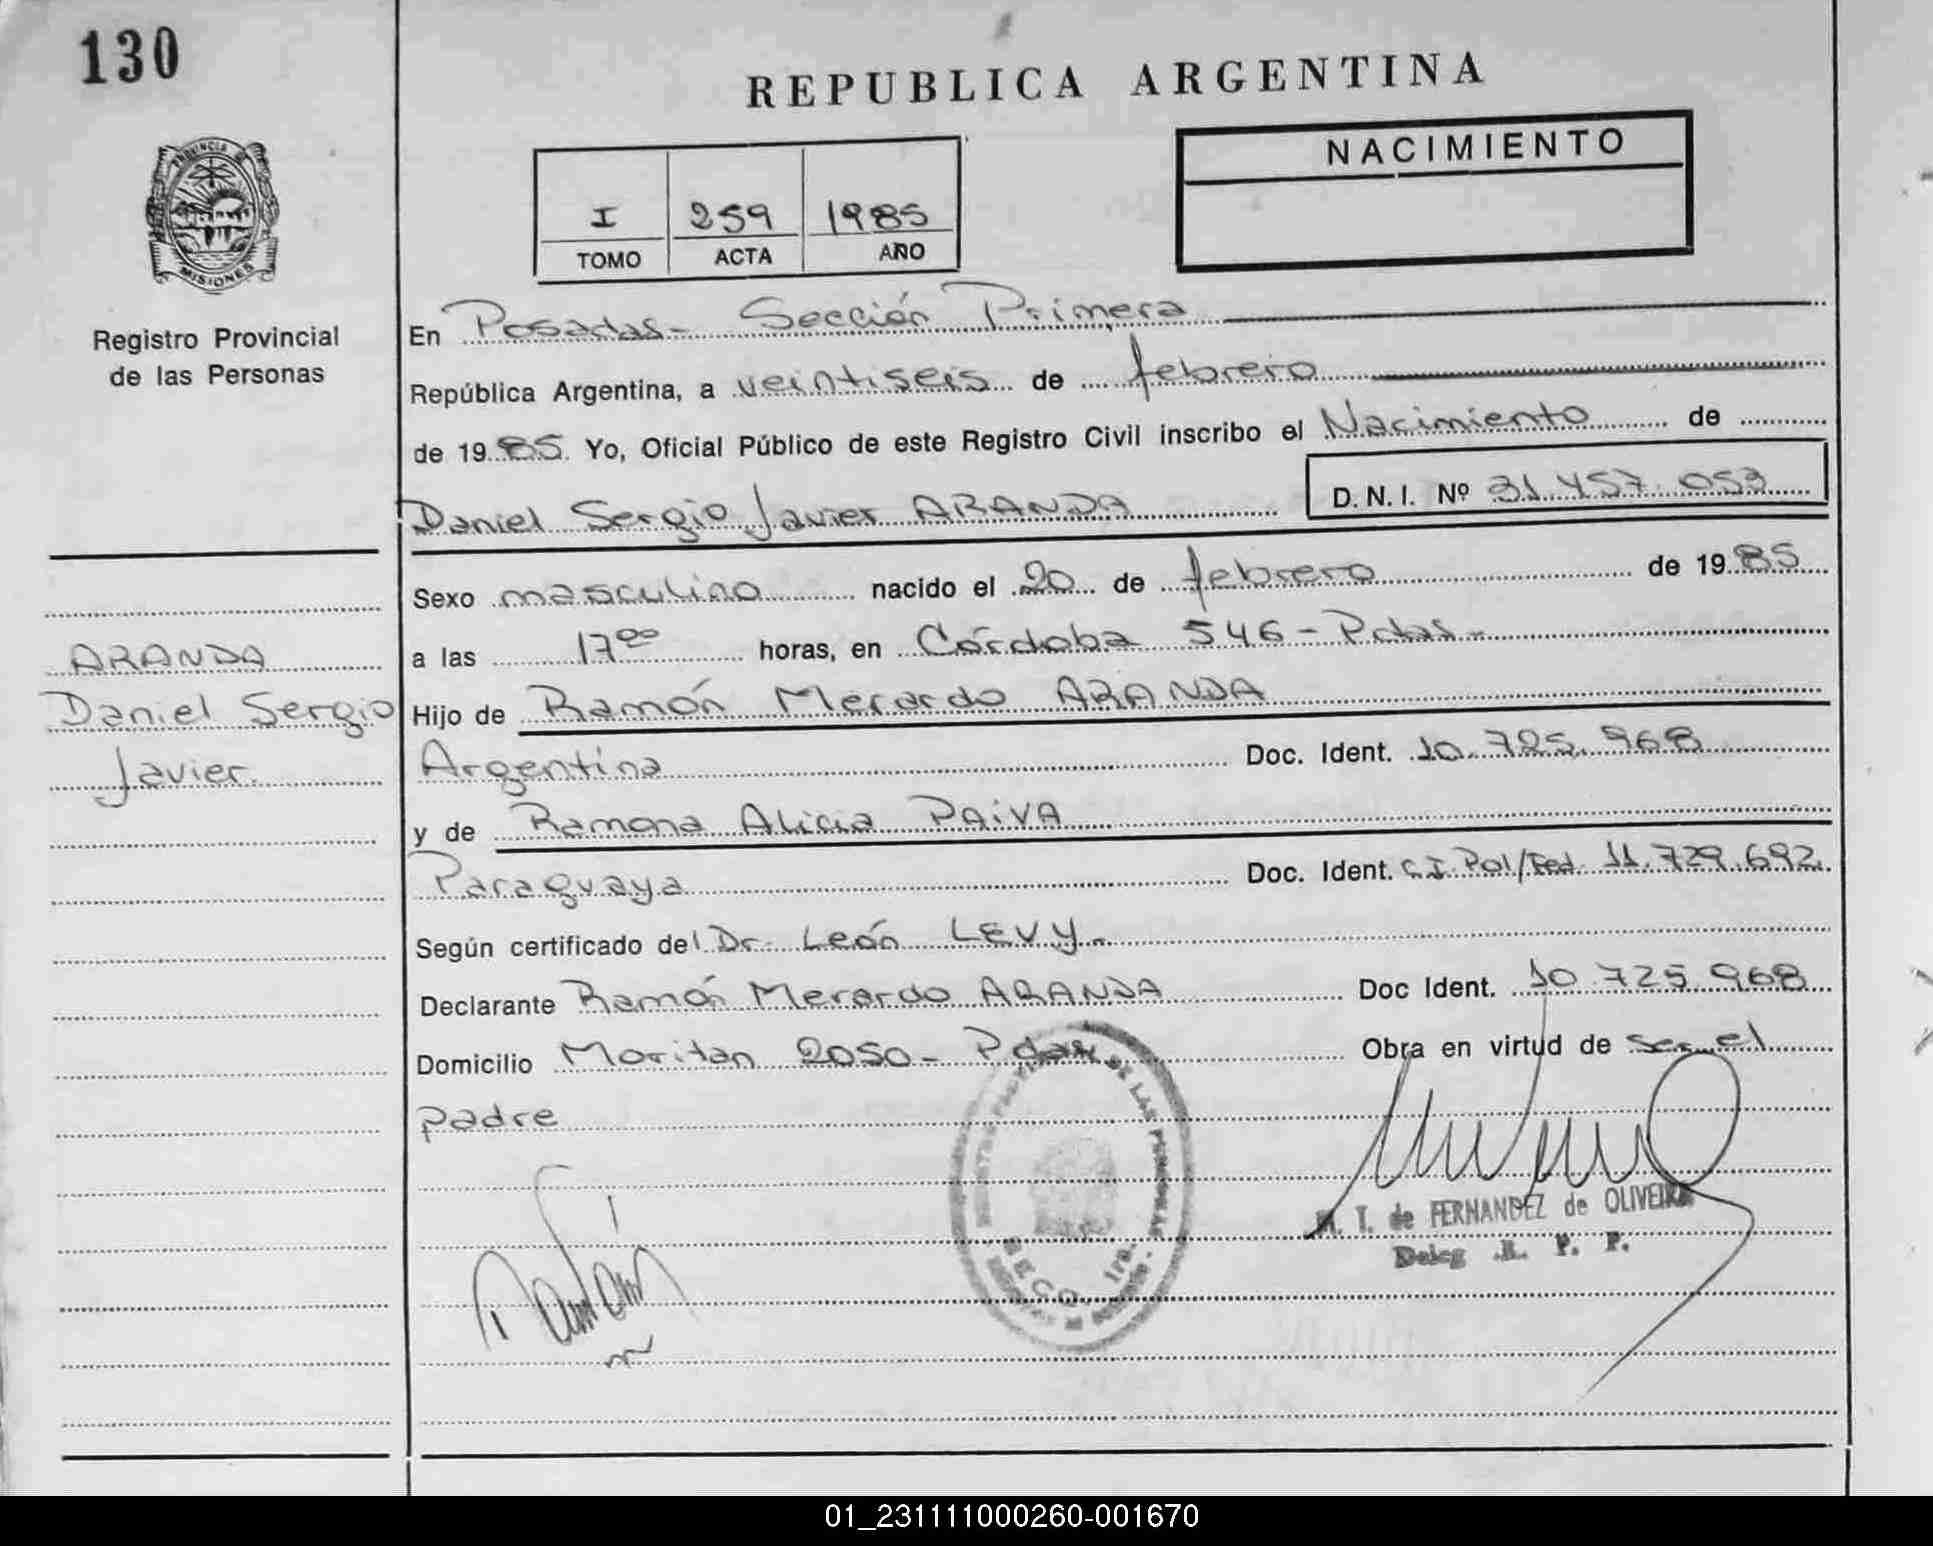 130
REPUBLICA ARGENTINA
PROVINCIA DE
MISIONES
NACIMIENTO
I 259 1985
TOMO ACTA AÑO
Registro Provincial
de las Personas
En Posadas - Sección Primera
República Argentina, a veintiseis de febrero
de 1985 Yo, Oficial Público de este Registro Civil inscribo el Nacimiento de
Daniel Sergio Javier ARANDA D.N.I. Nº 31.457.053
Sexo masculino nacido el 20 de febrero de 1985
a las 17⁰⁰ horas, en Córdoba 546 - Pdas -
ARANDA
Daniel Sergio
Javier
Hijo de Ramón Merardo ARANDA
Argentina Doc. Ident. 10.725.968
y de Ramona Alicia PAIVA
Paraguaya Doc. Ident. C.I. Pol/Fed. 11.729.692.
Según certificado del Dr. León LEVY -
Declarante Ramón Merardo ARANDA Doc Ident. 10.725.968
Domicilio Moritan 2050 - Pdas. Obra en virtud de ser el
padre
DE LAS PERSONAS
SECC. 1ra.
M. T. de FERNANDEZ de OLIVEIRA
Deleg. R. P. P.
01_231111000260-001670